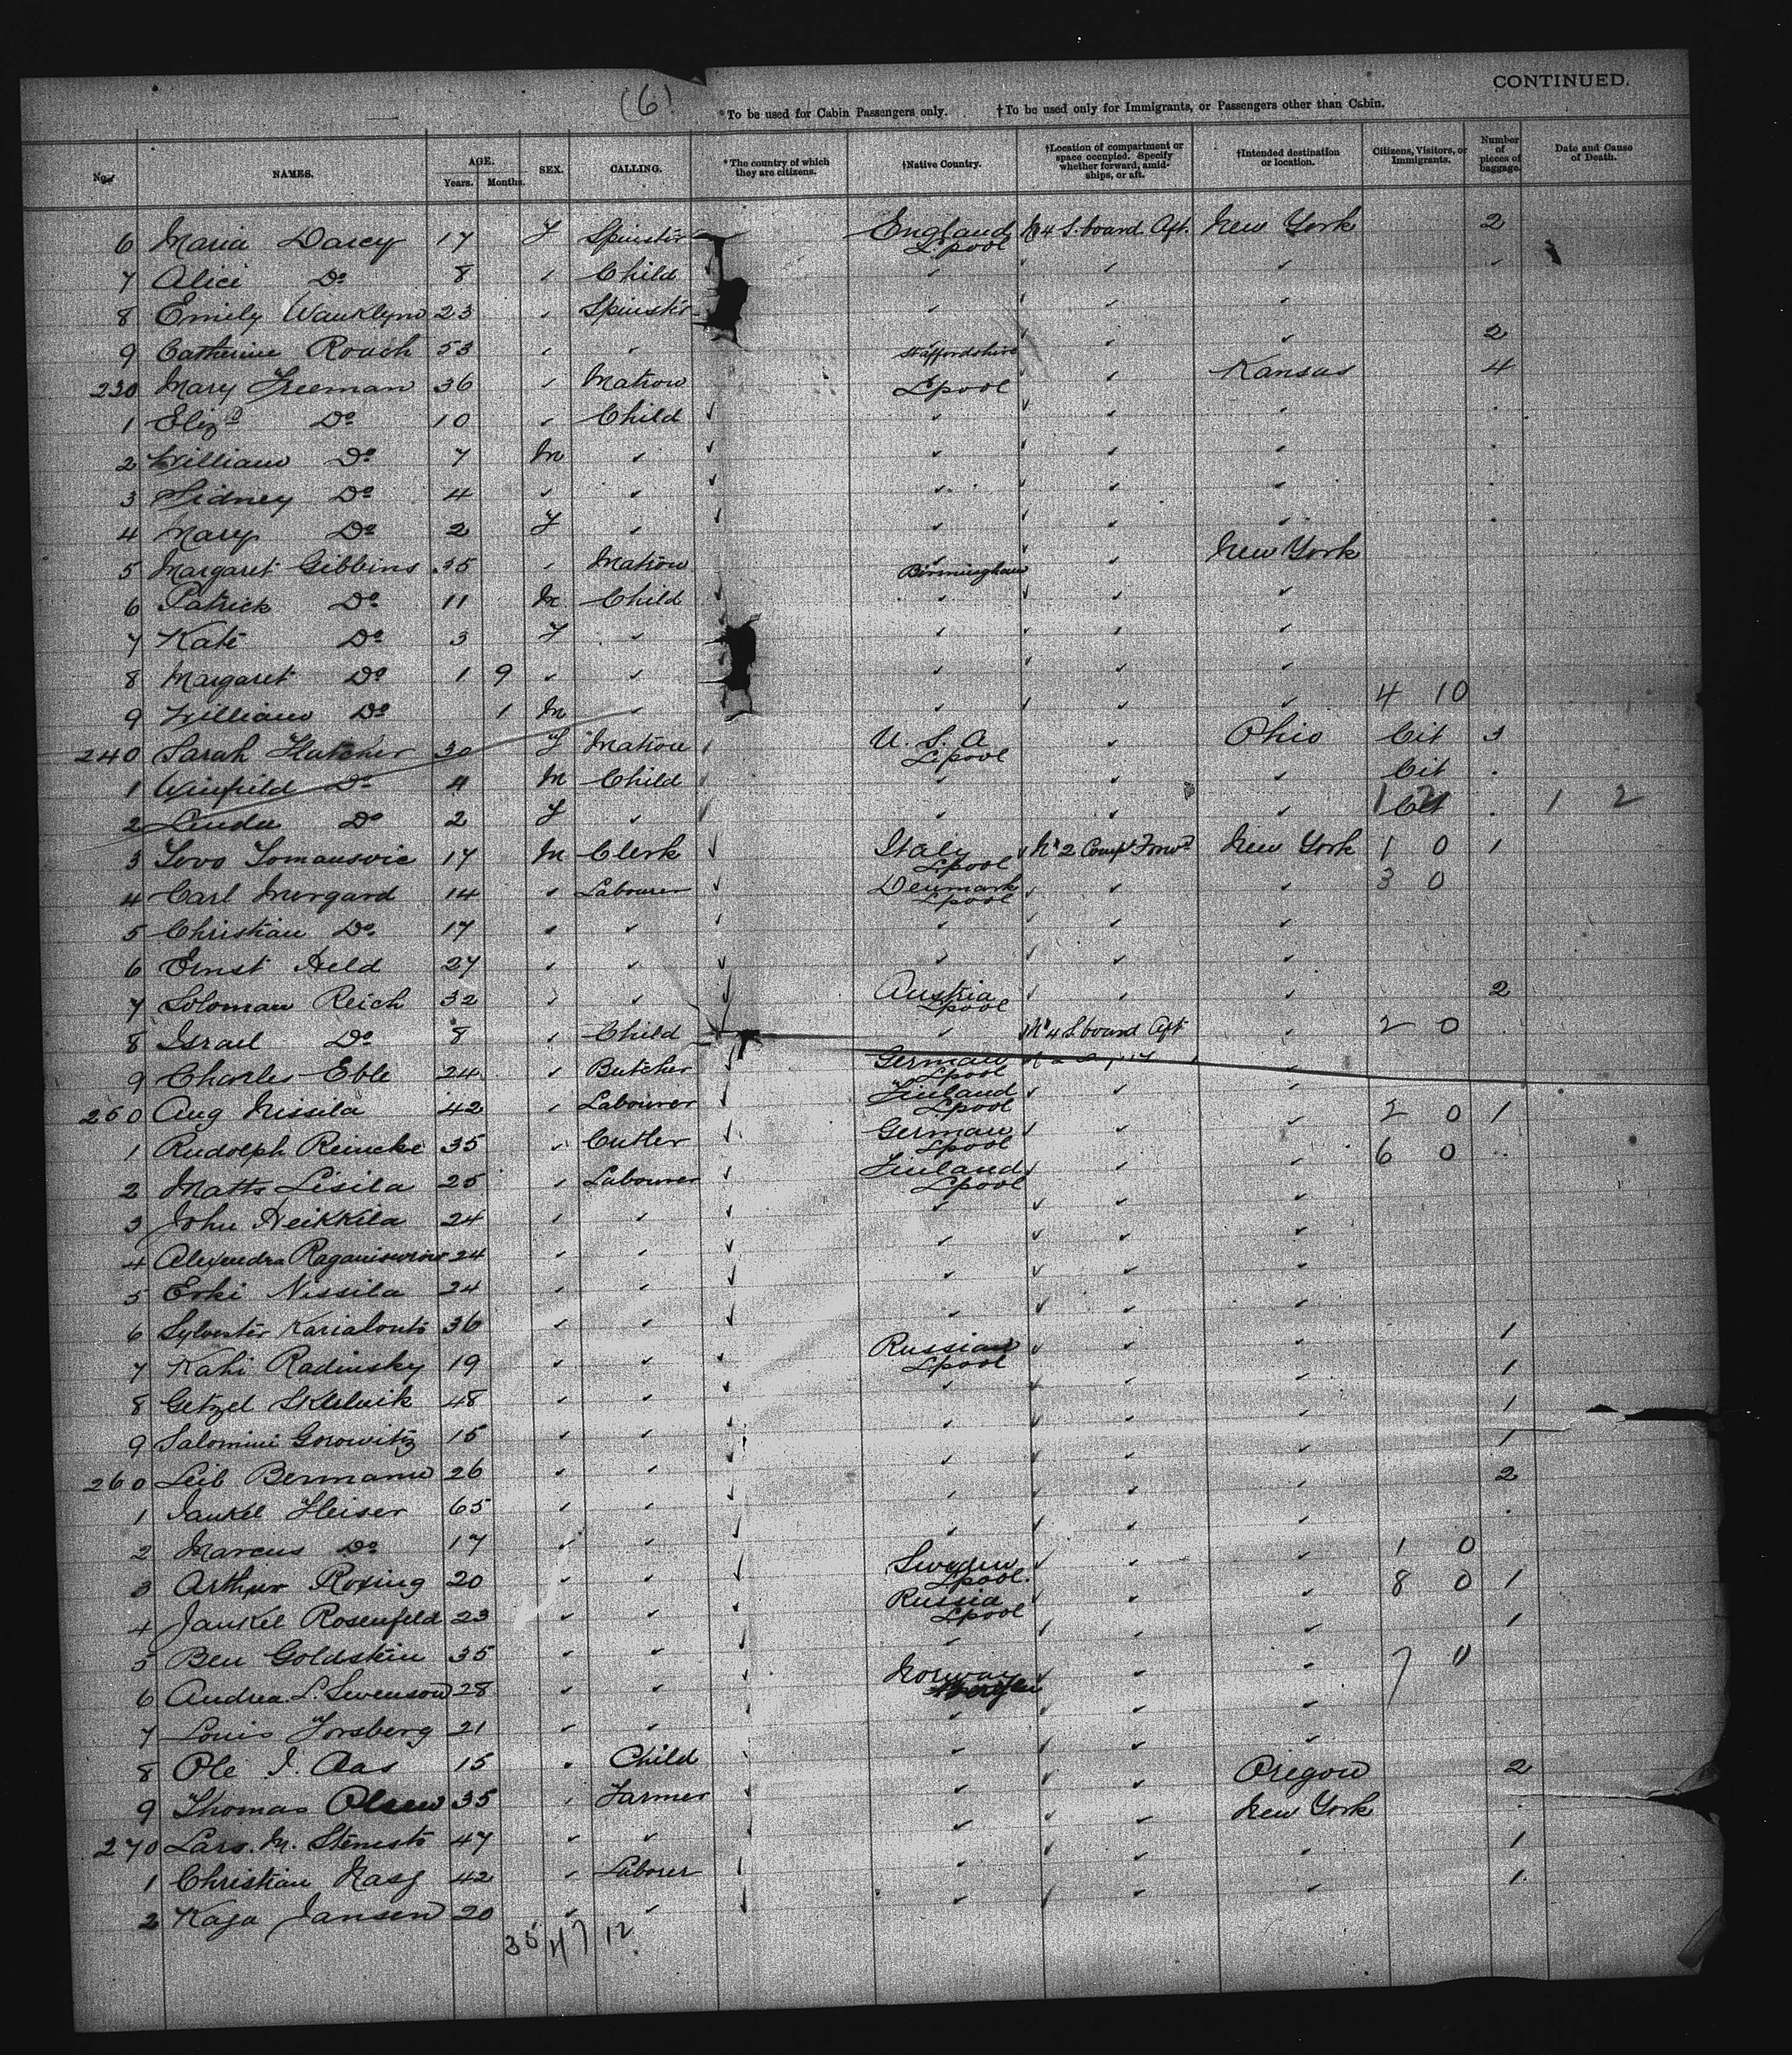 (6)
CONTINUED.
*To be used for Cabin Passengers only. †To be used only for Immigrants, or Passengers other than Cabin.
No. NAMES. AGE. Years. Months. SEX. CALLING. *The country of which they are citizens. †Native Country. †Location of compartment or space occupied. Specify whether forward, amidships, or aft. †Intended destination or location. Citizens, Visitors, or Immigrants. Number of pieces of baggage. Date and Cause of Death.
6 Maria Darcy 17 F Spinster England L'pool No 4 S.board Aft. New York 2
7 Alice Do 8 Child
8 Emily Wanklyn 23 Spinster
9 Catherine Roach 53 Staffordshire 2
230 Mary Freeman 36 Matron L'pool Kansas 4
1 Eliz Do 10 Child
2 William Do 7 M
3 Sidney Do 4
4 Mary Do 2 F
5 Margaret Gibbins 35 Matron Birmingham New York
6 Patrick Do 11 M Child
7 Kate Do 3 F
8 Margaret Do 1 9
9 William Do 1 M 4 10
240 Sarah Hatcher 30 F Matron U.S.A L'pool Ohio Cit 3
1 Winfield Do 4 M Child Cit
2 Linda Do 2 F Cit 1 2
3 17 M Clerk Italy L'pool No 2 Compt Forwd New York 1 0 1
4 Carl 14 Labourer Denmark L'pool 3 0
5 Christian Do 17
6 Ernst Held 27
7 Soloman Reich 32 Austria L'pool 2
8 Israel Do 8 Child No 4 S.board Aft 2 0
9 Charles Eble 24 Butcher German L'pool
250 Aug Nissila 42 Labourer Finland L'pool 2 0 1
1 Rudolph Reincke 35 Cutler German L'pool 6 0
2 Matts Lisila 25 Labourer Finland L'pool
3 John Heikkila 24
4 Alexandra 24
5 Erki Nissila 24
6 Sylvester 36 1
7 Kahi Radinsky 19 Russian L'pool 1
8 Getzel 48 1
9 Gorowitz 15 1
260 Leib Bermann 26 2
1 Jankel Heiser 65
2 Marcus Do 17 1 0
3 Arthur Roxing 20 Sweden L'pool 8 0 1
4 Jankel Rosenfeld 23 Russia L'pool 1
5 Ben Goldstein 35 7 0
6 Andrea L. Swenson 28 Norway Bergen
7 Louis Forsberg 21
8 Ole I. Aas 15 Child Oregon 2
9 Thomas Olsen 35 Farmer New York
270 Lars. M. 47 1
1 Christian 42 Laborer 1
2 Kaja Jansen 20
35 47 12